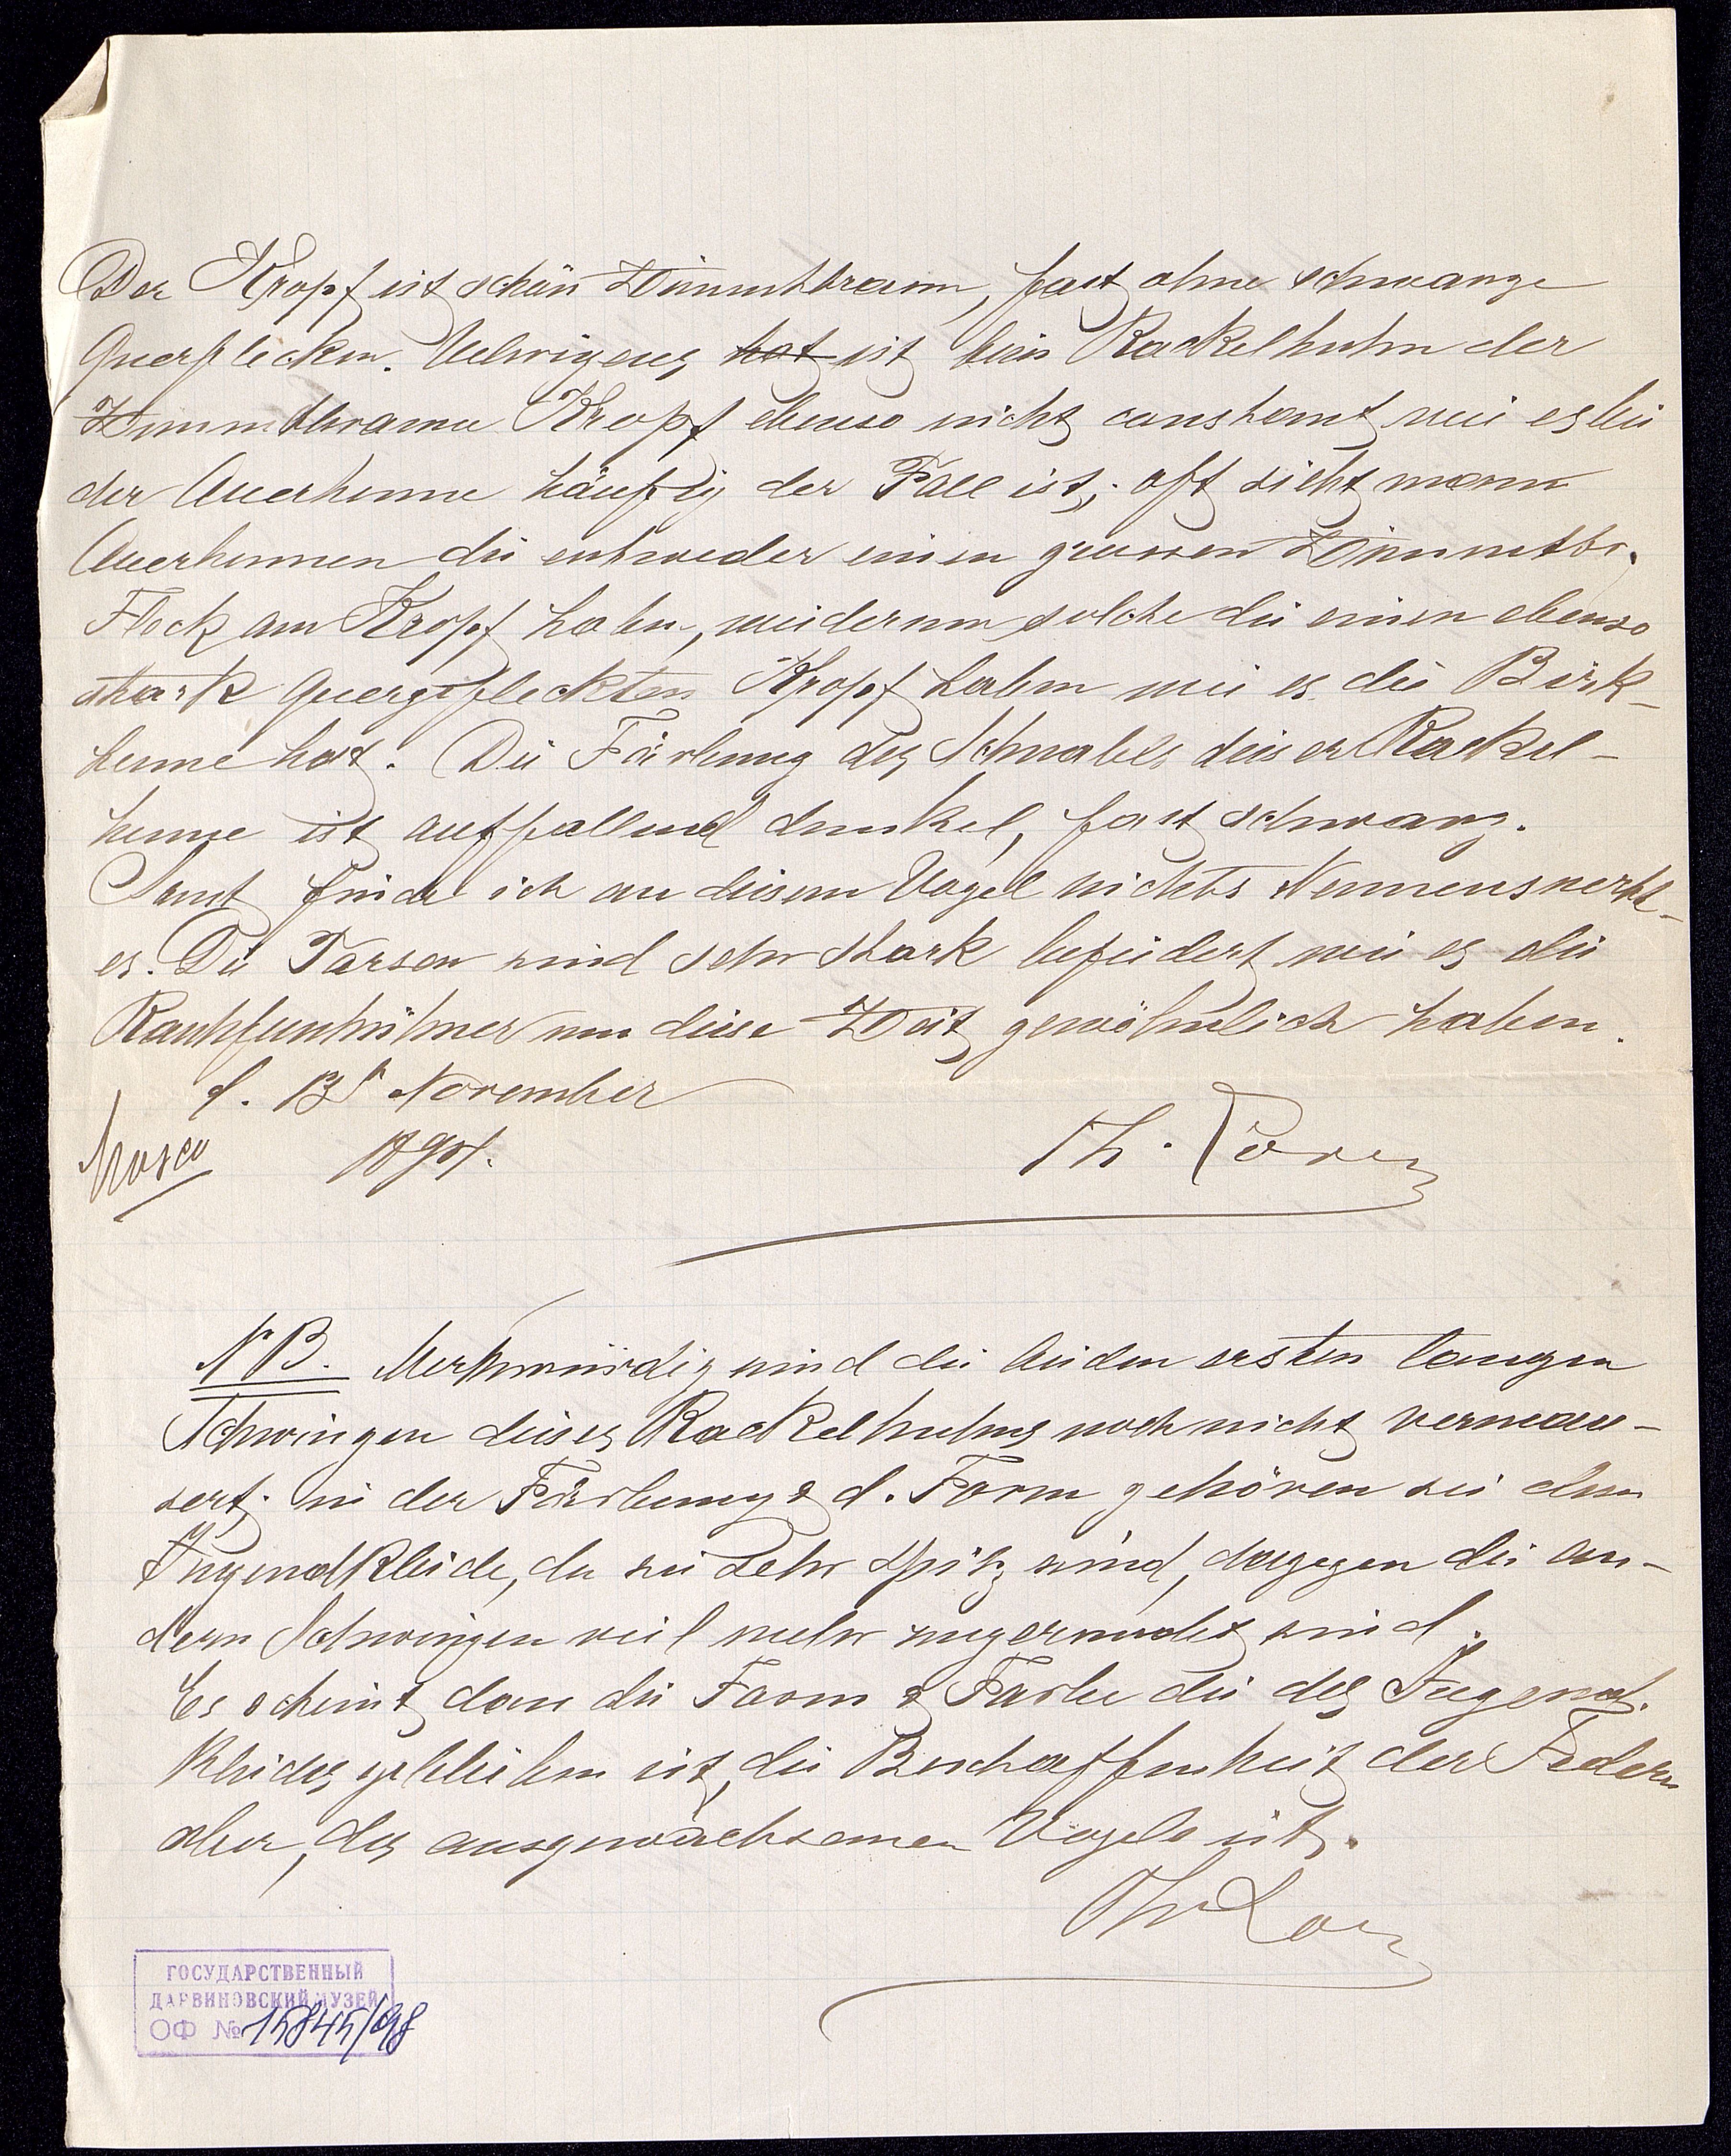 Der Kropf ist schön Zimmtbraun, fast ohne schwarze
Querflecken. Uebrigens hat ist beim Rackelhuhn der
Zimmtbraune Kropf ebenso nicht constant wie es bei
der Auerhenne häufig der Fall ist; oft sieht mann
Auerhennen die entweder einen grossen Zimmtbr.
Fleck am Kropf haben, wiederum solche die einen ebenso
stark quergefleckten Kropf haben wie es die Birk-
henne hat. Die Färbung des Schnabels dieser Rackel-
henne ist auffallend dunkel, fast schwarz.
Sonst finde ich an diesem Vogel nichts Nennenswerth-
es. Die Tarsen sind sehr stark befiedert wie es die
Rauhfusshühner um diese Zeit gewöhnlich haben.
d. November
Mosco
Th. Lorenz
NB. Merkwürdig sind die beiden ersten langen
Schwingen dieses Rackelhuhns noch nicht vermau-
sert; in der Färbung & d. Form gehören sie dem
Jugendkleide, da sie sehr spitz sind, dagegen die an-
dern Schwingen viel mehr zugerundet sind.
Es scheint dass die Form & Farbe die des Jugend.
Kleides geblieben ist, die Beschaffenheit der Federn
aber, des ausgewachsenen Vogels ist.
Th Lor
ГОСУДАРСТВЕННЫЙ
ДАРВИНОВСКИЙ МУЗЕЙ
ОФ № 15845/698